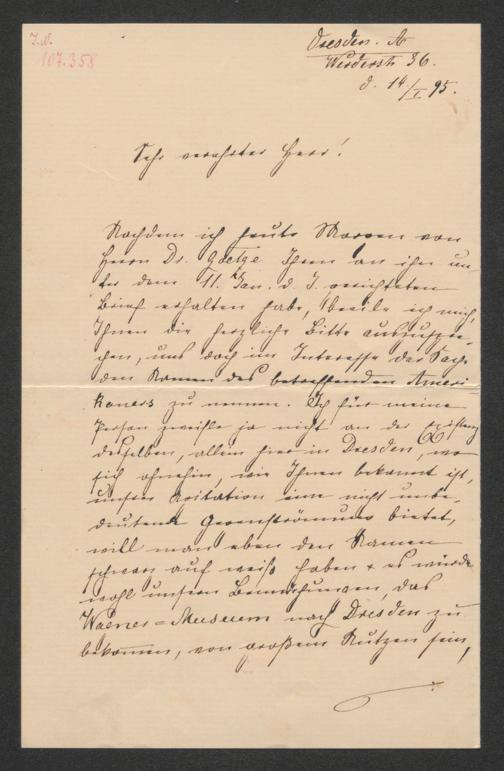 J.N.
107.358
Dresden. A
Werderstr 36.
d. 14/I 95.
Sehr verehrter Herr!
Nachdem ich heute Morgen von
Herrn Dr. Goetze Ihren an ihn un-
ter dem 11. Jan. d. J. gerichteten
Brief erhalten habe, beeile ich mich,
Ihnen die herzliche Bitte auszuspre-
chen, uns doch im Interesse der Sache
den Namen des betreffenden Ameri
kaners zu nennen. Ich für meine
Person zweifle ja nicht an der Existenz
desselben, allein hier in Dresden, wo
sich ohnehin, wie Ihnen bekannt ist,
unserer Agitation eine nicht unbe-
deutende Gegenströmung bietet,
will man eben den Namen
schwarz auf weiß haben & es würde
wohl unseren Bemühungen, das
Wagner=Museum nach Dresden zu
bekommen, von großem Nutzen sein,